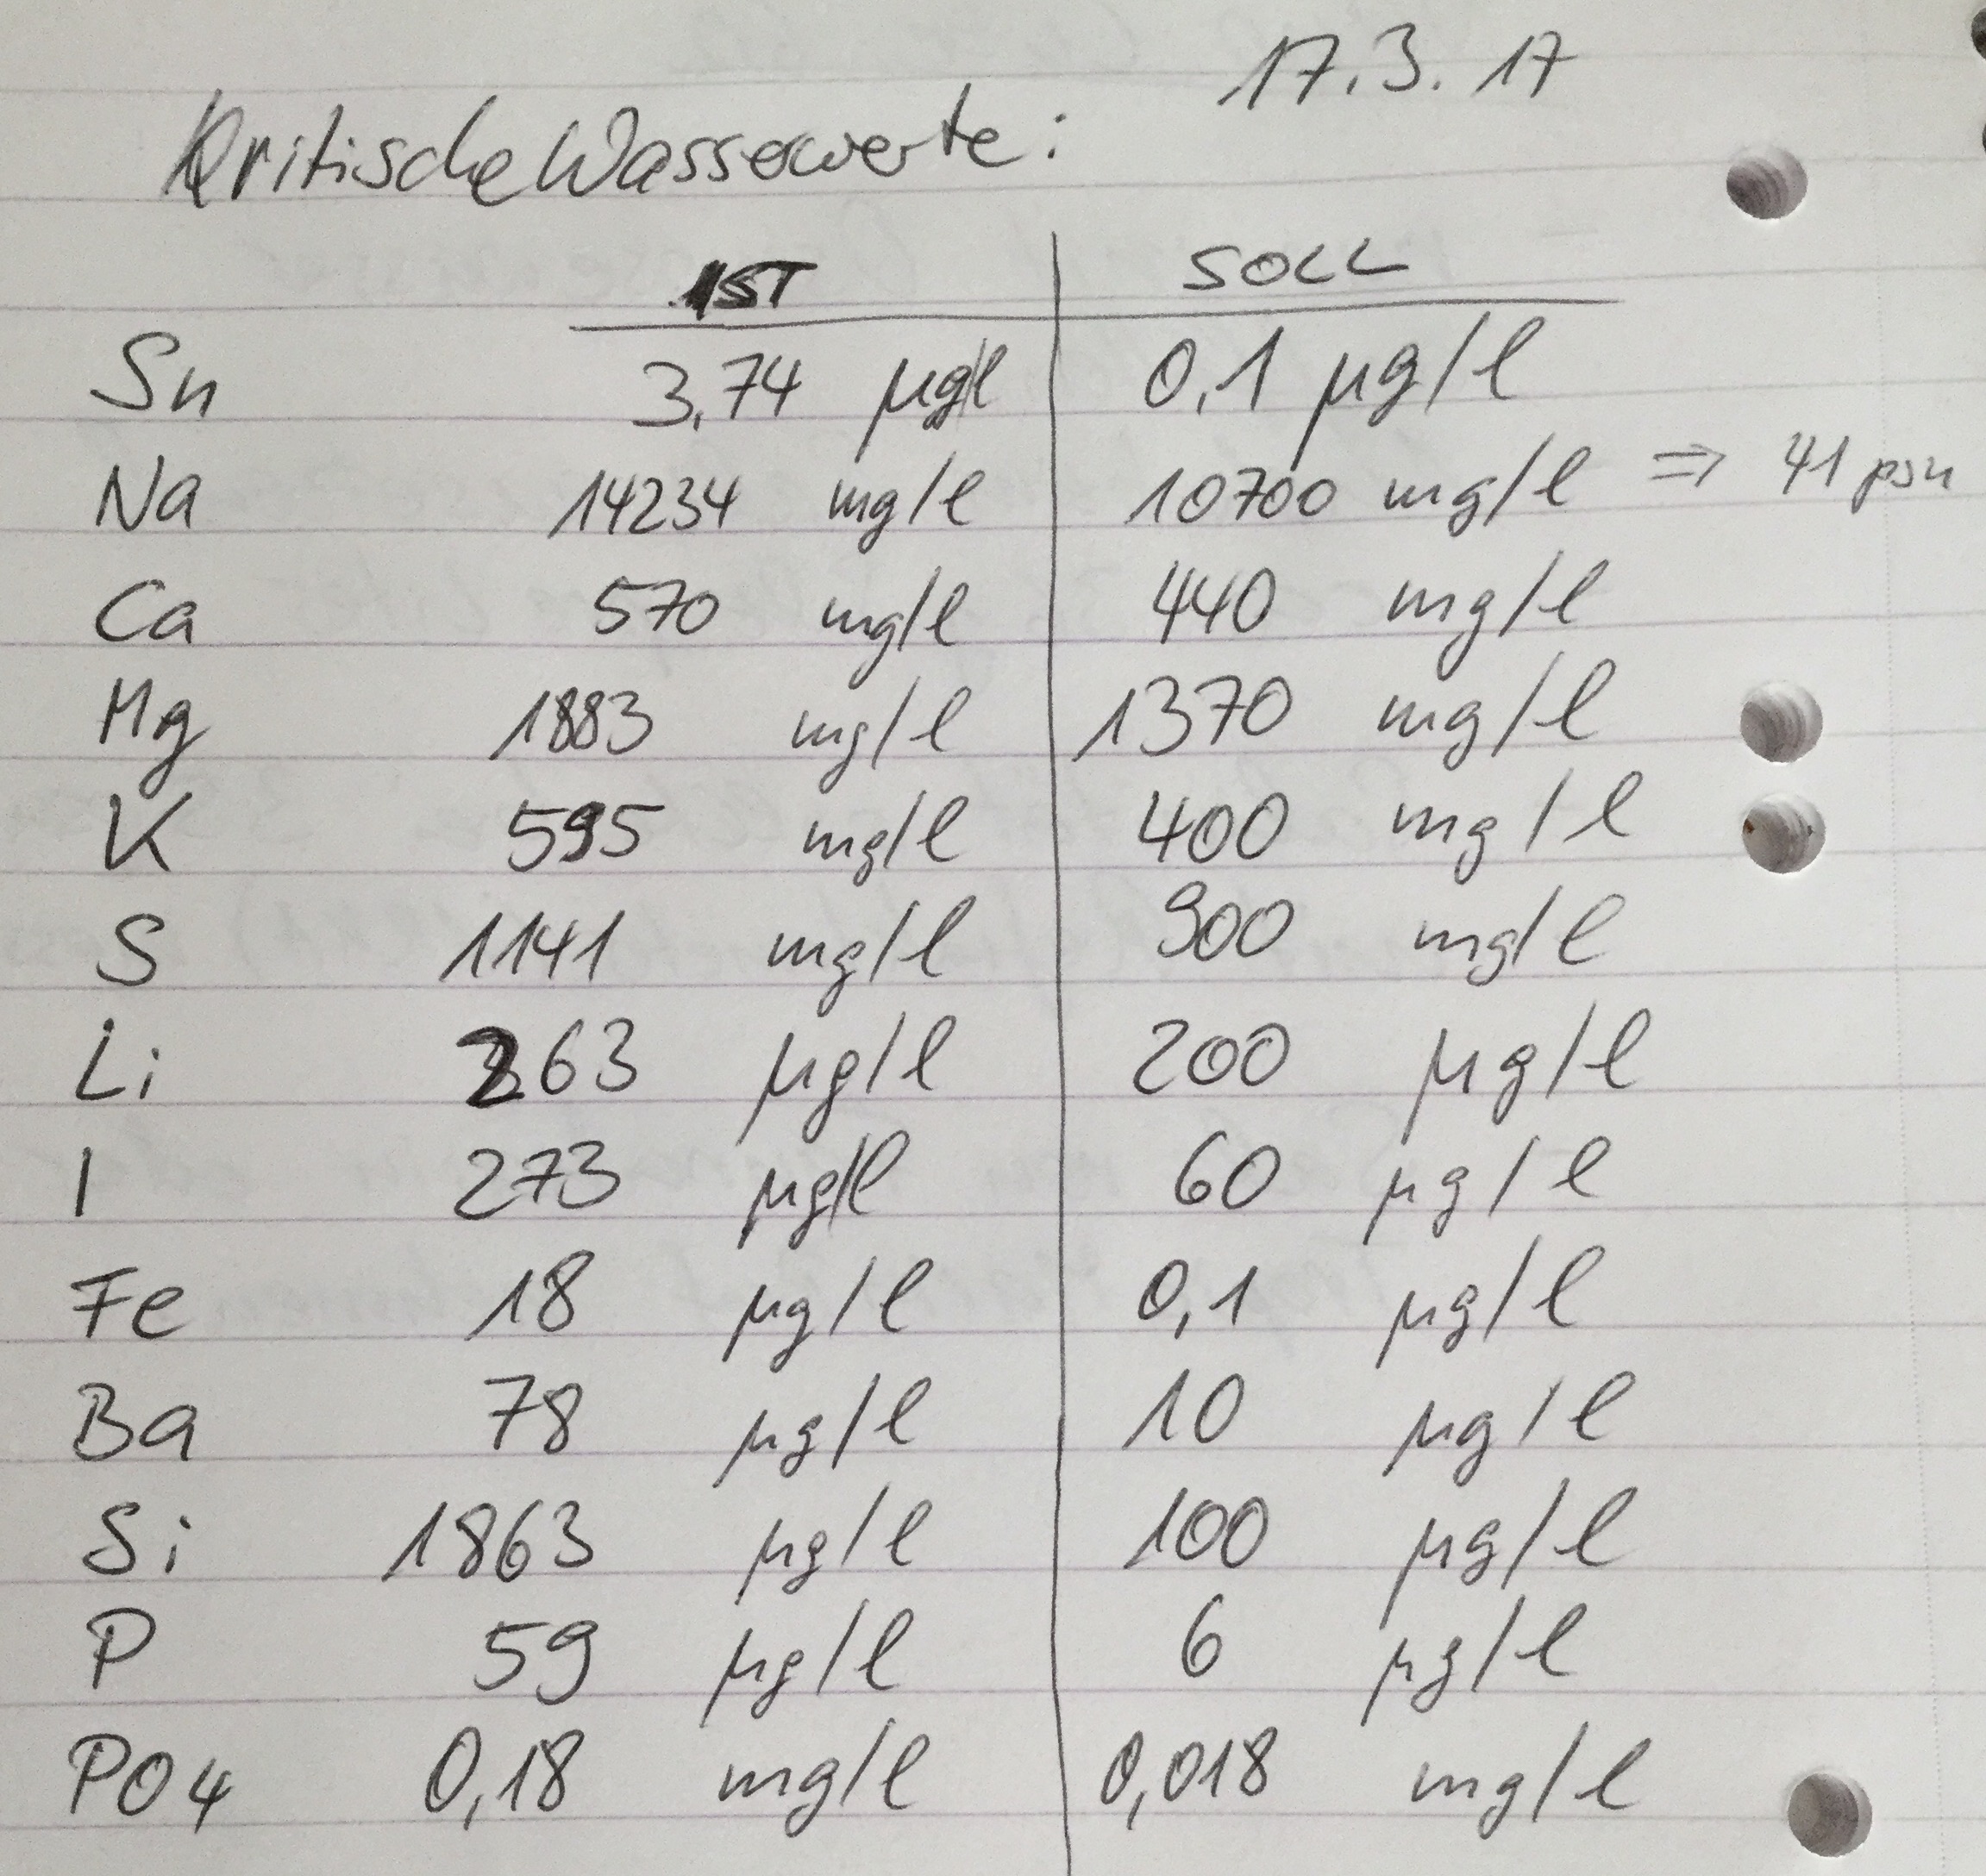 17.3.17
Kritische Wasserwerte:
IST SOLL
Sn 3,74 µg/l 0,1 µg/l
Na 14234 mg/l 10700 mg/l ⇒ 41 psu
Ca 570 mg/l 440 mg/l
Mg 1883 mg/l 1370 mg/l
K 595 mg/l 400 mg/l
S 1141 mg/l 900 mg/l
Li 263 µg/l 200 µg/l
I 273 µg/l 60 µg/l
Fe 18 µg/l 0,1 µg/l
Ba 78 µg/l 10 µg/l
Si 1863 µg/l 100 µg/l
P 59 µg/l 6 µg/l
PO4 0,18 mg/l 0,018 mg/l